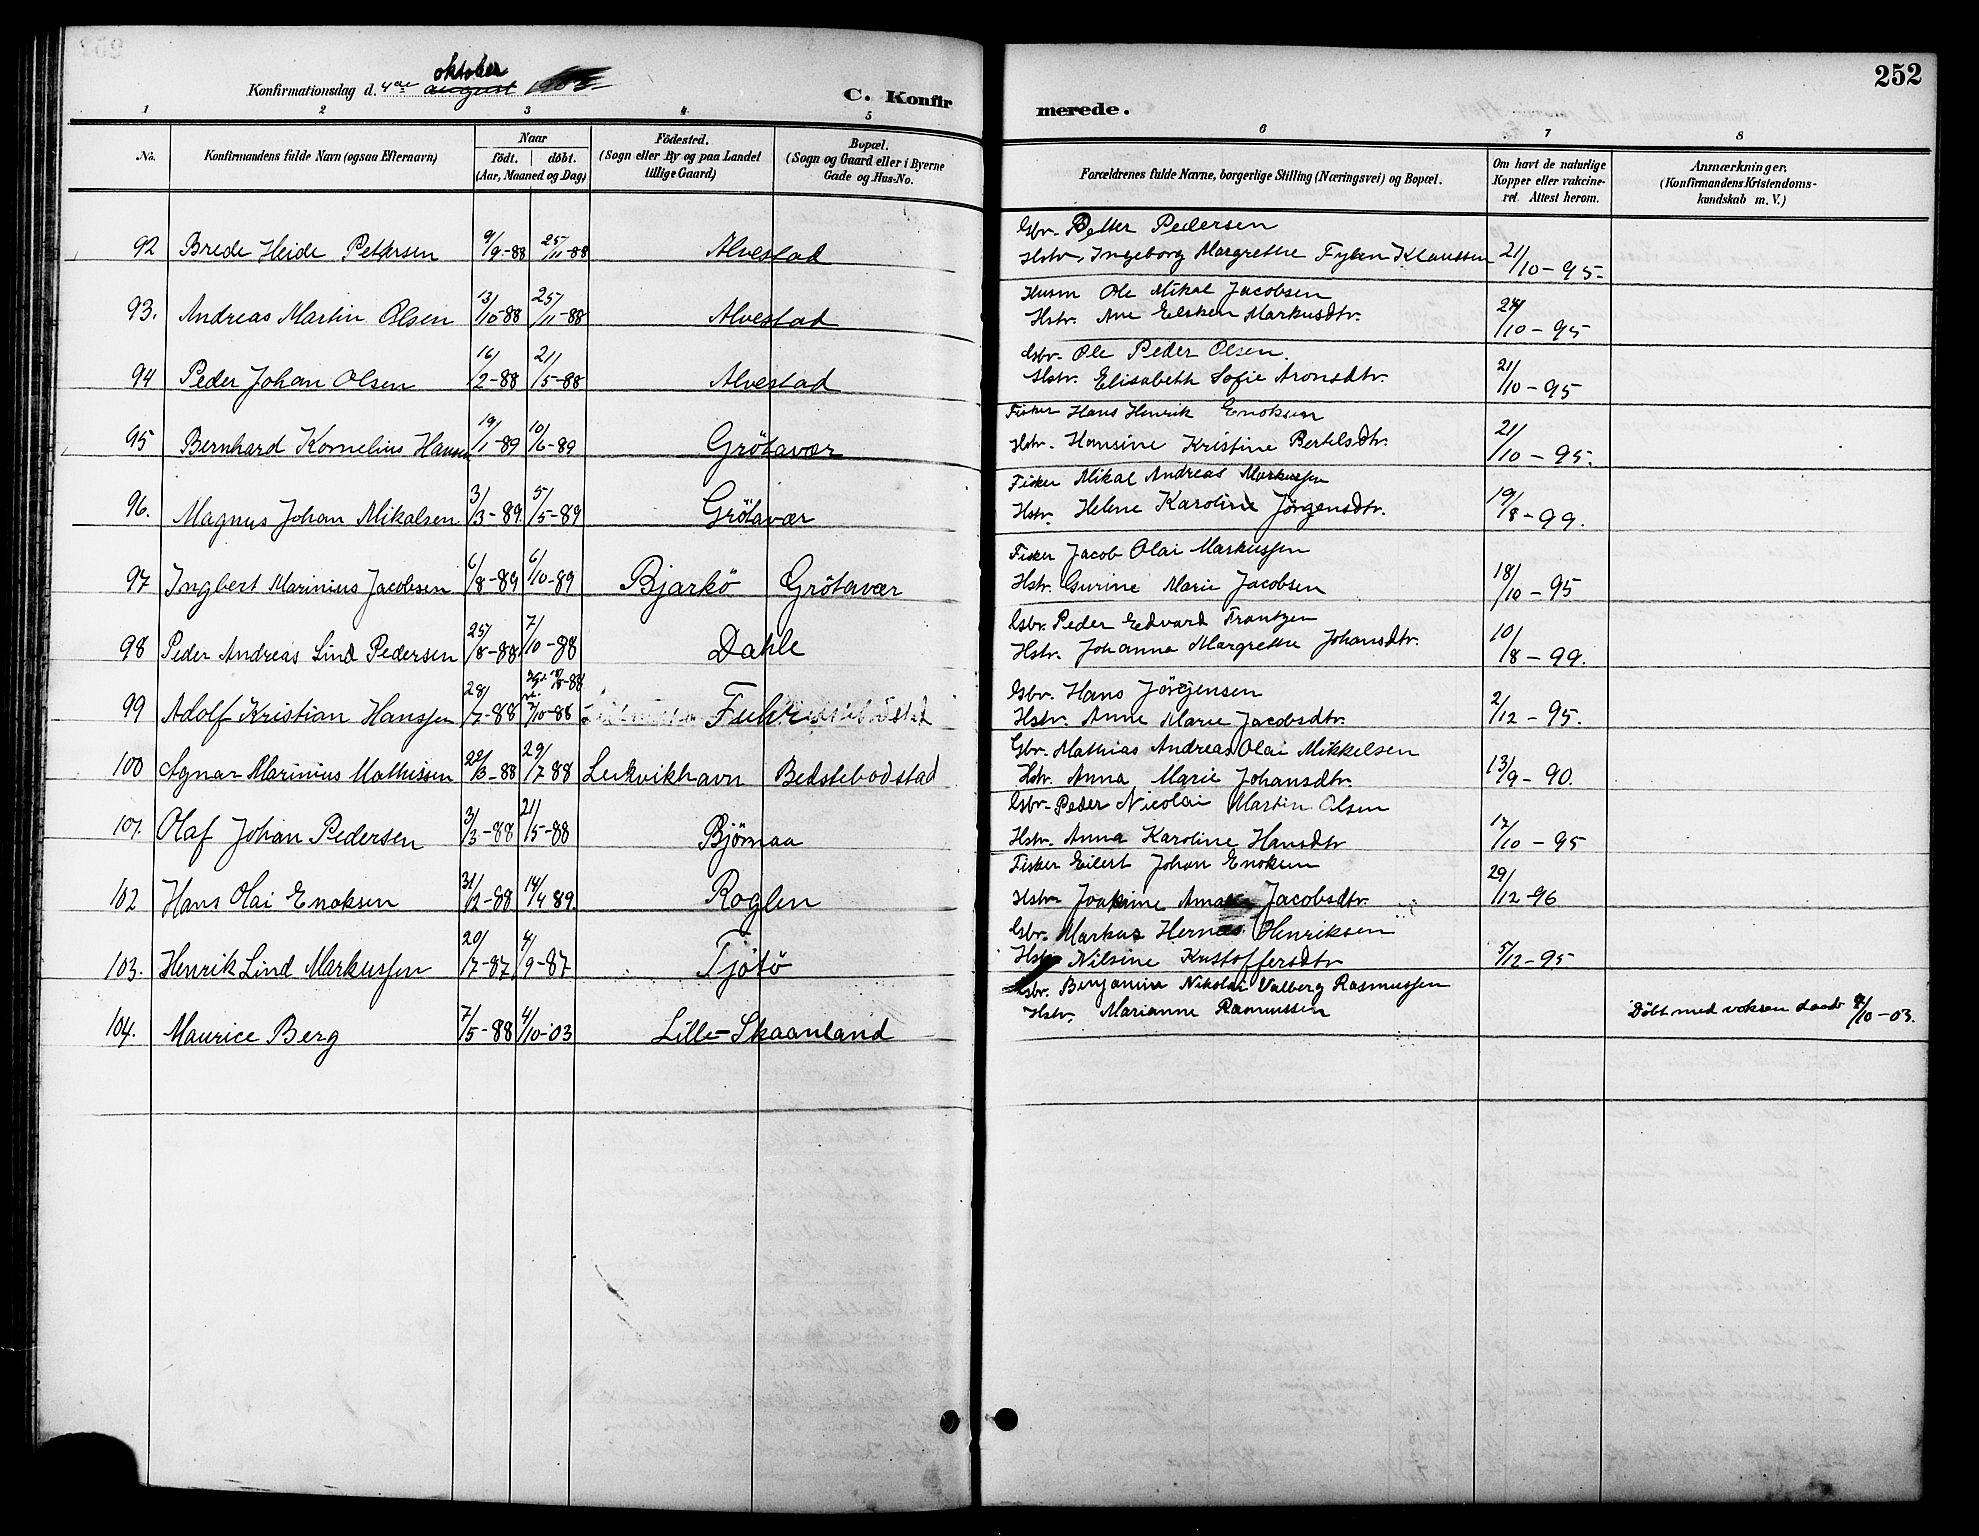 oktober
Konfirmationsdag d. 4de august 1903
C. Konfirmerede.
252
1 2 3 4 5 6 7 8
No. Konfirmandens fulde Navn (ogsaa Efternavn) Naar födt. döbt. (Aar, Maaned og Dag) Födested. (Sogn eller By og paa Landet tillige Gaard) Bopæl. (Sogn og Gaard eller i Byerne Gade og Hus-No. Forældrenes fulde Navne, borgerlige Stilling (Næringsvei) og Bopæl. Om havt de naturlige Kopper eller vakcineret. Attest herom. Anmærkninger. (Konfirmandens Kristendomskundskab m. V.)
Gbr. Petter Pedersen
92 Brede Heide Petersen 9/9-88 25/11-88 Alvestad Hstr. Ingeborg Margrethe Fylken Klaussen 21/10-95.
Husm Ole Mikal Jacobsen
93. Andreas Martin Olsen 13/10-88 25/11-88 Alvestad Hstr. Ane Elsken Markusdtr. 24/10-95
Gbr. Ole Peder Olsen.
94 Peder Johan Olsen 16/2-88 21/5-88 Alvestad Hstr. Elisabeth Sofie Aronsdtr. 21/10-95
Fisker Hans Henrik Enoksen
95 Bernhard Kornelius Hansen 19/1-89 10/6-89 Grötavær Hstr. Hansine Kristine Bertelsdtr. 21/10-95.
Fisker Mikal Andreas Markussen
96. Magnus Johan Mikalsen 3/3-89. 5/5-89 Grötavær Hstr. Helene Karoline Jörgensdtr. 19/8-99.
Fisker Jacob Olai Markussen
97 Ingbert Marinius Jacobsen 6/8-89 6/10-89 Bjarkö Grötavær Hstr. Gurine Marie Jacobsen 18/10-95
Gbr. Peder Edvard Frantzen
98 Peder Andreas Lind Pedersen 25/8-88 7/10-88 Dahle Hstr. Johanna Margrethe Johansdtr. 10/8-99.
Gbr. Hans Jörgensen
99 Adolf Kristian Hanssen 28/7-88 7/10-88 Hstr. Anne Marie Jacobsdtr. 2/12-95.
Gbr. Mathias Andreas Olai Mikkelsen
100 Agnar Marinius Mathissen 22/3-88 29/7 88 Leikvikhavn Bedstebodstad Hstr. Anna Marie Johansdtr. 13/9-90.
Gbr. Peder Nicolai Martin Olsen
101. Olaf Johan Pedersen 3/3-88 21/5-88 Björnaa Hstr. Anna Karoline Hansdtr 17/10-95
Fisker Eilert Johan Enoksen
102 Hans Olai Enoksen 31/12-88 14/4 89 Roglen Hstr. Joakime Jacobsdtr. 29/12-96
Gbr. Markus Hernes Henriksen
103. Henrik Lind Markussen 20/7-87 4/9-87 Tjötö Hstr Nilsine Kristoffersdtr 5/12-95
Gbr. Benjamin Nikolai Valberg Rasmussen
104. Maurice Berg 7/5-88 4/10-03 Lille-Skaanland Hstr. Marianne Rasmussen Döbt med voksen daab 4/10-03.